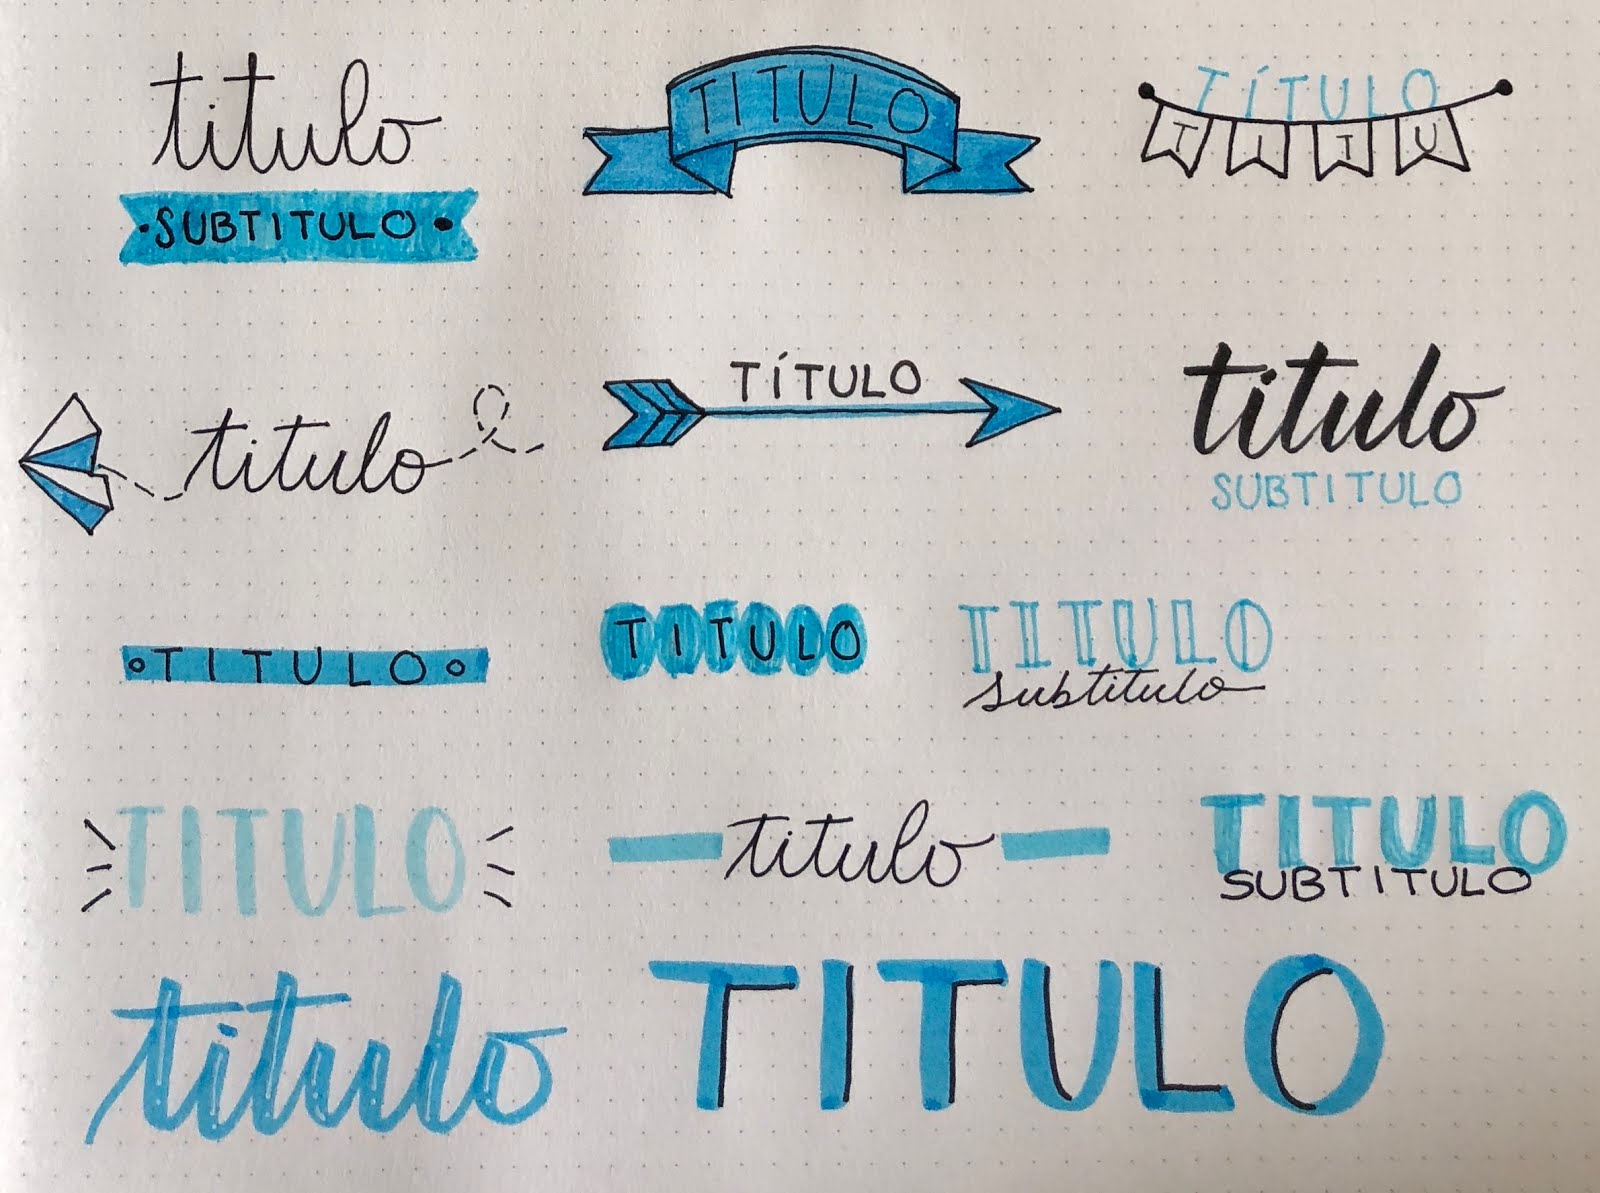 titulo
SUBTITULO
TITULO
TÍTULO
TITU
titulo
TÍTULO
titulo
SUBTITULO
TITULO
TITULO
TITULO
subtitulo
TITULO
titulo
TITULO
SUBTITULO
titulo
TITULO